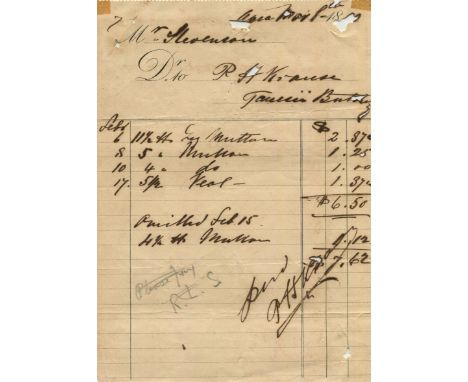 7
Apia Nov 8th 18
Mr. Stevenson
Dr to R H Krause
Butchery
Feb $
6 11½ lb Leg Mutton 2.87½
8 5 " Mutton 1.25
10 4 " do 1.00
17. 5½ Veal — 1.37½
$6.50
Omitted Feb 15.
4½ lb Mutton 1.12
7.62
Please pay
R. L. S
paid
R H Krause